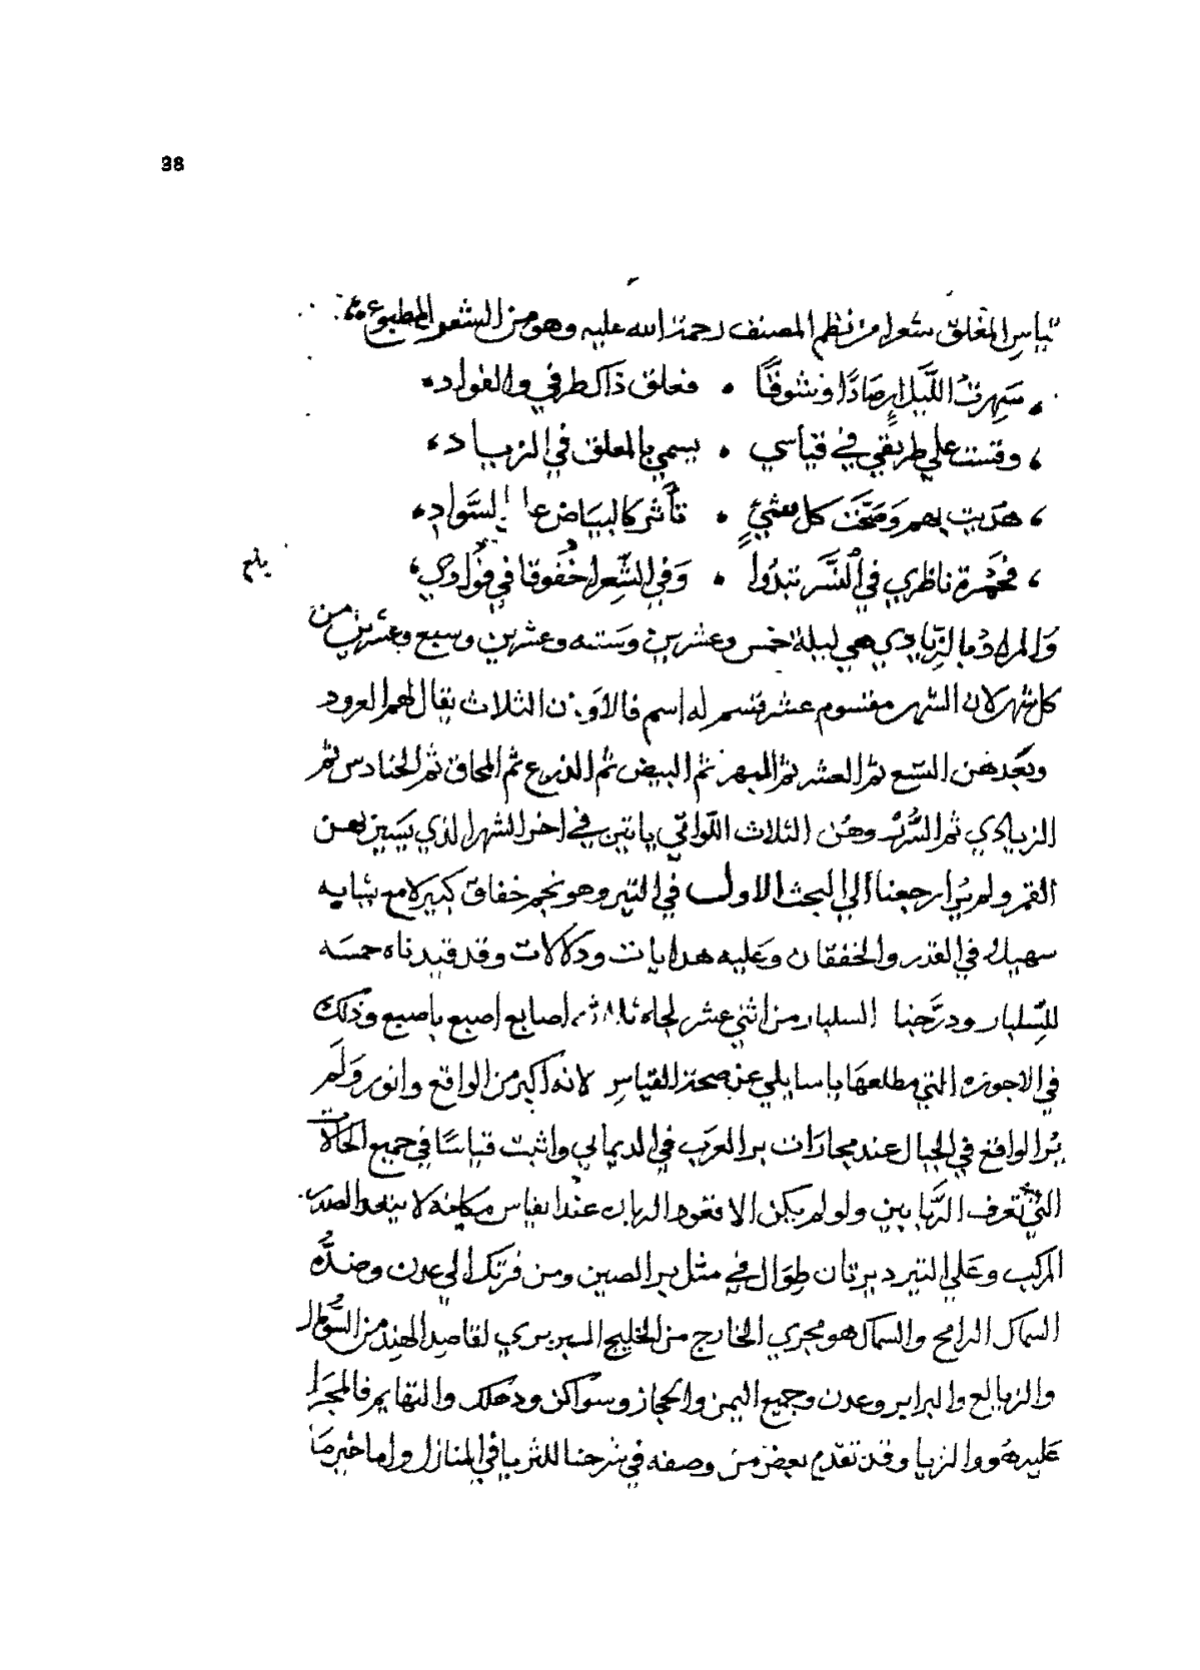 38
قياس المغلق شعرا من نظم المصنف رحمة الله عليه وهو من الشعر المطبوع
سَهِرتُ اللَّيلَ إرصادًا وشوقًا ، فعلق ذاك طرفي والفواد
وقست علي طريقي في قياسي ، يسمي بالمعلق في الزباد
هديت بهم كل شيءٍ ، تأثر كالبياض السَّواد
فحمرة ناظري في النسر تبدوا ، وَفي الشِّعرا خُفُوقا في فؤادي
يلم
وَالمرادُ بالزِّبادي هي ليلة خمس وعشرين وسته وعشرين وسبع وعشرين من
كل شهر لان الشهر مقسوم عشر قسم له اسم فالاول الثلاث يقال لهم العرود
وبَعدهن التسع ثم العشر ثم المبهر ثم البيض ثم الدرع ثم المحاق ثم الحنادس ثم
الزبادي ثم السُّرر وهُن الثلاث اللّواتي ياتين في اخر الشهر الذي يَسير بهن
القمر ولم يُرا رجعنا الي البحث الاول في التير وهو نجم خفاق كبير لامع يشابه
سهيل في القدر والخفقان وعليه هدايات ودلالات وقد قيدناه خمسَه
للسِّلبار ودرَّجنا السلبار من اثني عشر لجاه اصابع اصبع باصبع وذلك
في الاجوزه التي مطلعهَا يا سايلي عن صحة القياسِ لانه أكبر من الواقع وانور وَلَم
يُرا الواقع في الجبال عند مجارات بر العرَب في الديماني واثبت قياسًا في جميع الحالات
التي تعرف الرَّبابين ولو لم يكن الا قعود الربان عند القياس مكانه لا يتعد الصدر
المركب وعَلي التير ديرتان طِوَال في مثل بر الصين ومن فرتك الي عدن وضدُّه
السماك الرامح والسماك هو مجري الخارج من الخليج البربري لقاصد الهند من السُّومال
والزيالع والبرابر وعدن وجميع اليمن والحجاز وسواكن ودهلك والتهايم فالمجرَا
عَليه هُو والزبا وقد تقدّم بعض من وصفه في شرحنا للثريا في المنازل واما خبر مَا